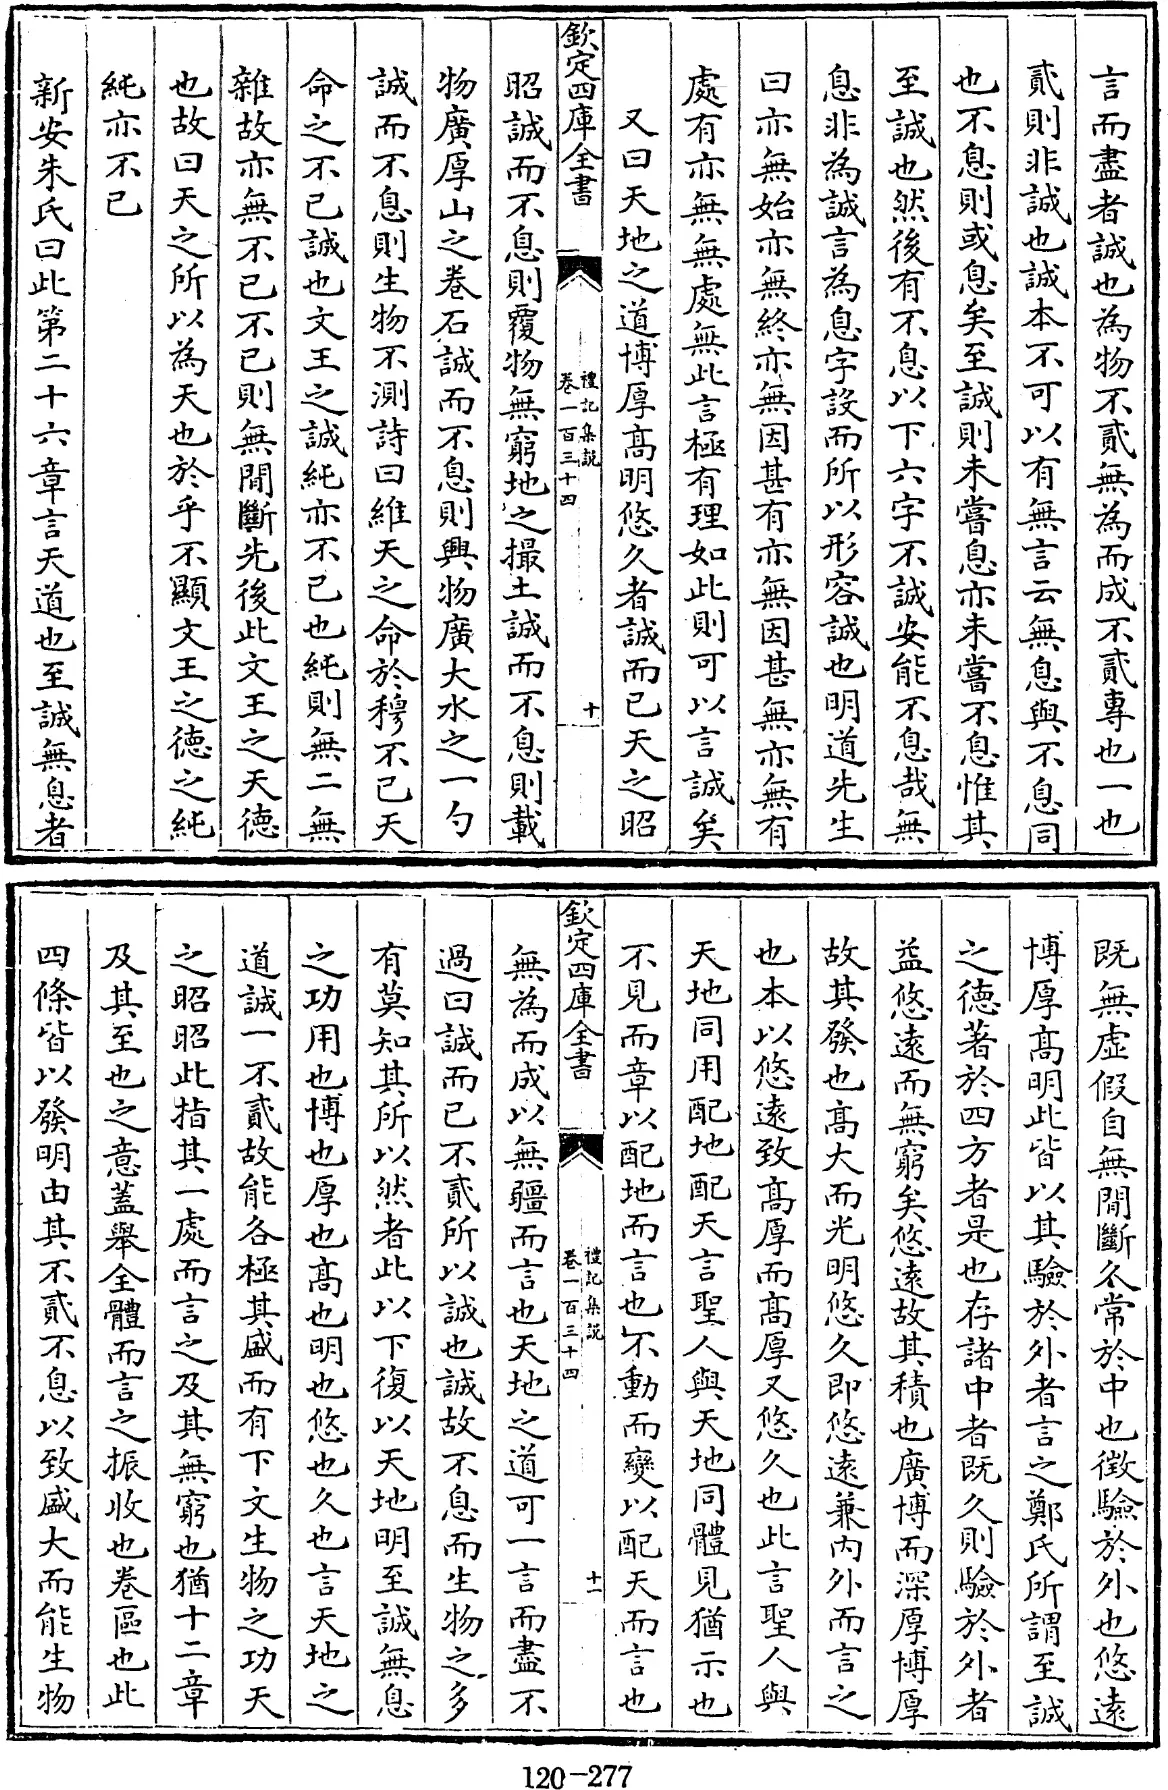 言而盡者誠也為物不貳無為而成不貳專也一也
貳則非誠也誠本不可以有無言云無息與不息同
也不息則或息矣至誠則未嘗息亦未嘗不息惟其
至誠也然後有不息以下六字不誠安能不息哉無
息非為誠言為息字設而所以形容誠也明道先生
曰亦無始亦無終亦無因甚有亦無因甚無亦無有
處有亦無無處無此言極有理如此則可以言誠矣
又曰天地之道博厚高明悠久者誠而已天之昭
欽定四庫全書
禮記集説
卷一百三十四
十
昭誠而不息則覆物無窮地之撮土誠而不息則載
物廣厚山之卷石誠而不息則興物廣大水之一勺
誠而不息則生物不測詩曰維天之命於穆不已天
命之不已誠也文王之誠純亦不已也純則無二無
雜故亦無不已不已則無間斷先後此文王之天德
也故曰天之所以為天也於乎不顯文王之德之純
純亦不已
新安朱氏曰此第二十六章言天道也至誠無息者
既無虛假自無間斷久常於中也徵驗於外也悠遠
博厚高明此皆以其驗於外者言之鄭氏所謂至誠
之德著於四方者是也存諸中者既久則驗於外者
益悠遠而無窮矣悠遠故其積也廣博而深厚博厚
故其發也高大而光明悠久即悠遠兼内外而言之
也本以悠遠致高厚而高厚又悠久也此言聖人與
天地同用配地配天言聖人與天地同體見猶示也
不見而章以配地而言也不動而變以配天而言也
欽定四庫全書
禮記集説
卷一百三十四
十一
無為而成以無疆而言也天地之道可一言而盡不
過曰誠而已不貳所以誠也誠故不息而生物之多
有莫知其所以然者此以下復以天地明至誠無息
之功用也博也厚也高也明也悠也久也言天地之
道誠一不貳故能各極其盛而有下文生物之功天
之昭昭此指其一處而言之及其無窮也猶十二章
及其至也之意蓋舉全體而言之振收也卷區也此
四條皆以發明由其不貳不息以致盛大而能生物
120-277